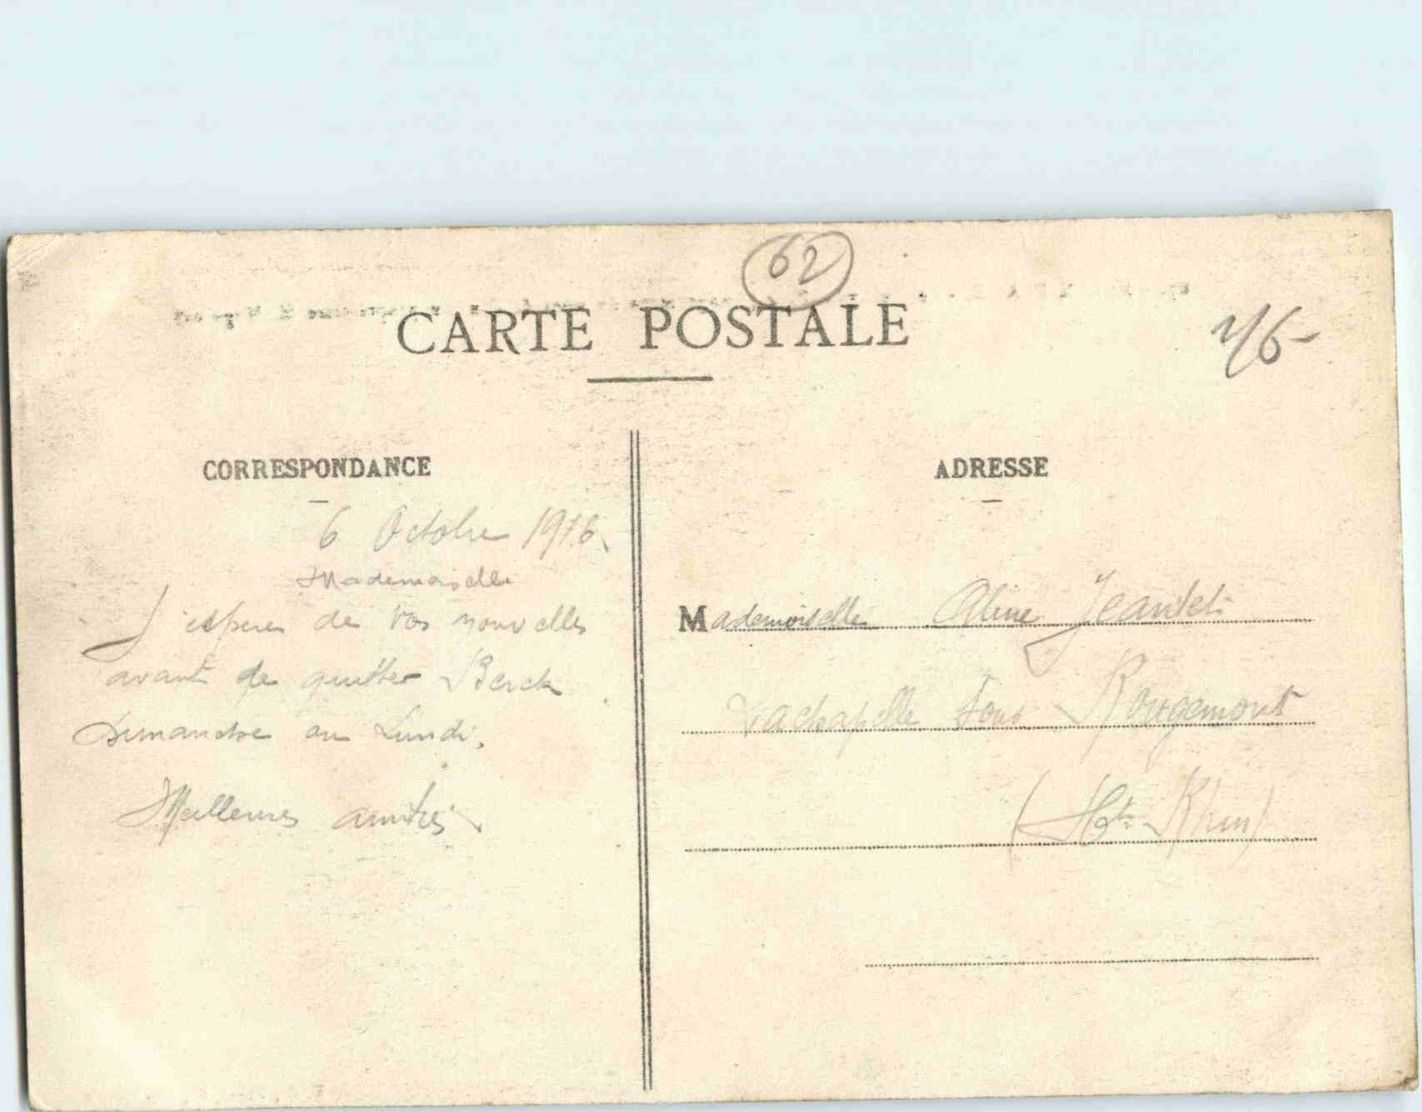 62
CARTE POSTALE
2/6-
CORRESPONDANCE
6 Octobre 1916.
Mademoiselle
J'espère de vos nouvelles
avant de quitter Berck
Dimanche ou Lundi.
Meilleures amitiés
ADRESSE
Mademoiselle Aline
Lachapelle sous Rougemont
(Ht. Rhin)